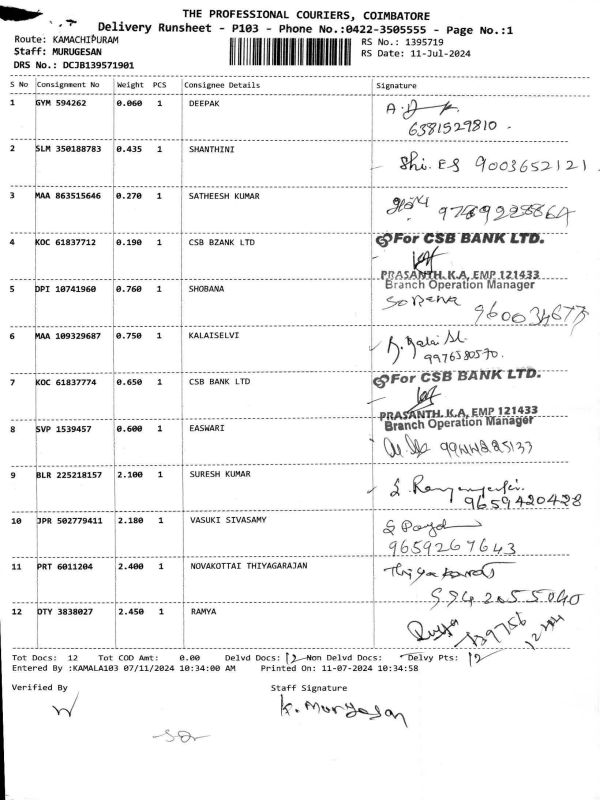 THE PROFESSIONAL COURIERS, COIMBATORE
Delivery Runsheet - P103 - Phone No.:0422-3505555 - Page No.:1
Route: KAMACHIPURAM RS No.: 1395719
Staff: MURUGESAN RS Date: 11-Jul-2024
DRS No.: DCJB139571901
S No Consignment No Weight PCS Consignee Details Signature
1 GYM 594262 0.060 1 DEEPAK
6381529810
2 SLM 350188783 0.435 1 SHANTHINI
Shi. ES 9003652121
3 MAA 863515646 0.270 1 SATHEESH KUMAR
4 KOC 61837712 0.190 1 CSB BZANK LTD
For CSB BANK LTD.
PRASANTH. K.A, EMP 121433
Branch Operation Manager
5 DPI 10741960 0.760 1 SHOBANA
6 MAA 109329687 0.750 1 KALAISELVI
9976580570.
7 KOC 61837774 0.650 1 CSB BANK LTD
For CSB BANK LTD.
PRASANTH. K.A, EMP 121433
Branch Operation Manager
8 SVP 1539457 0.600 1 EASWARI
9 BLR 225218157 2.100 1 SURESH KUMAR
9659420428
10 JPR 502779411 2.180 1 VASUKI SIVASAMY
9659267643
11 PRT 6011204 2.400 1 NOVAKOTTAI THIYAGARAJAN
12 OTY 3838027 2.450 1 RAMYA
Tot Docs: 12 Tot COD Amt: 0.00 Delvd Docs: 12 Non Delvd Docs: Delvy Pts: 12
Entered By :KAMALA103 07/11/2024 10:34:00 AM Printed On: 11-07-2024 10:34:58
Verified By Staff Signature
K. Murugesan